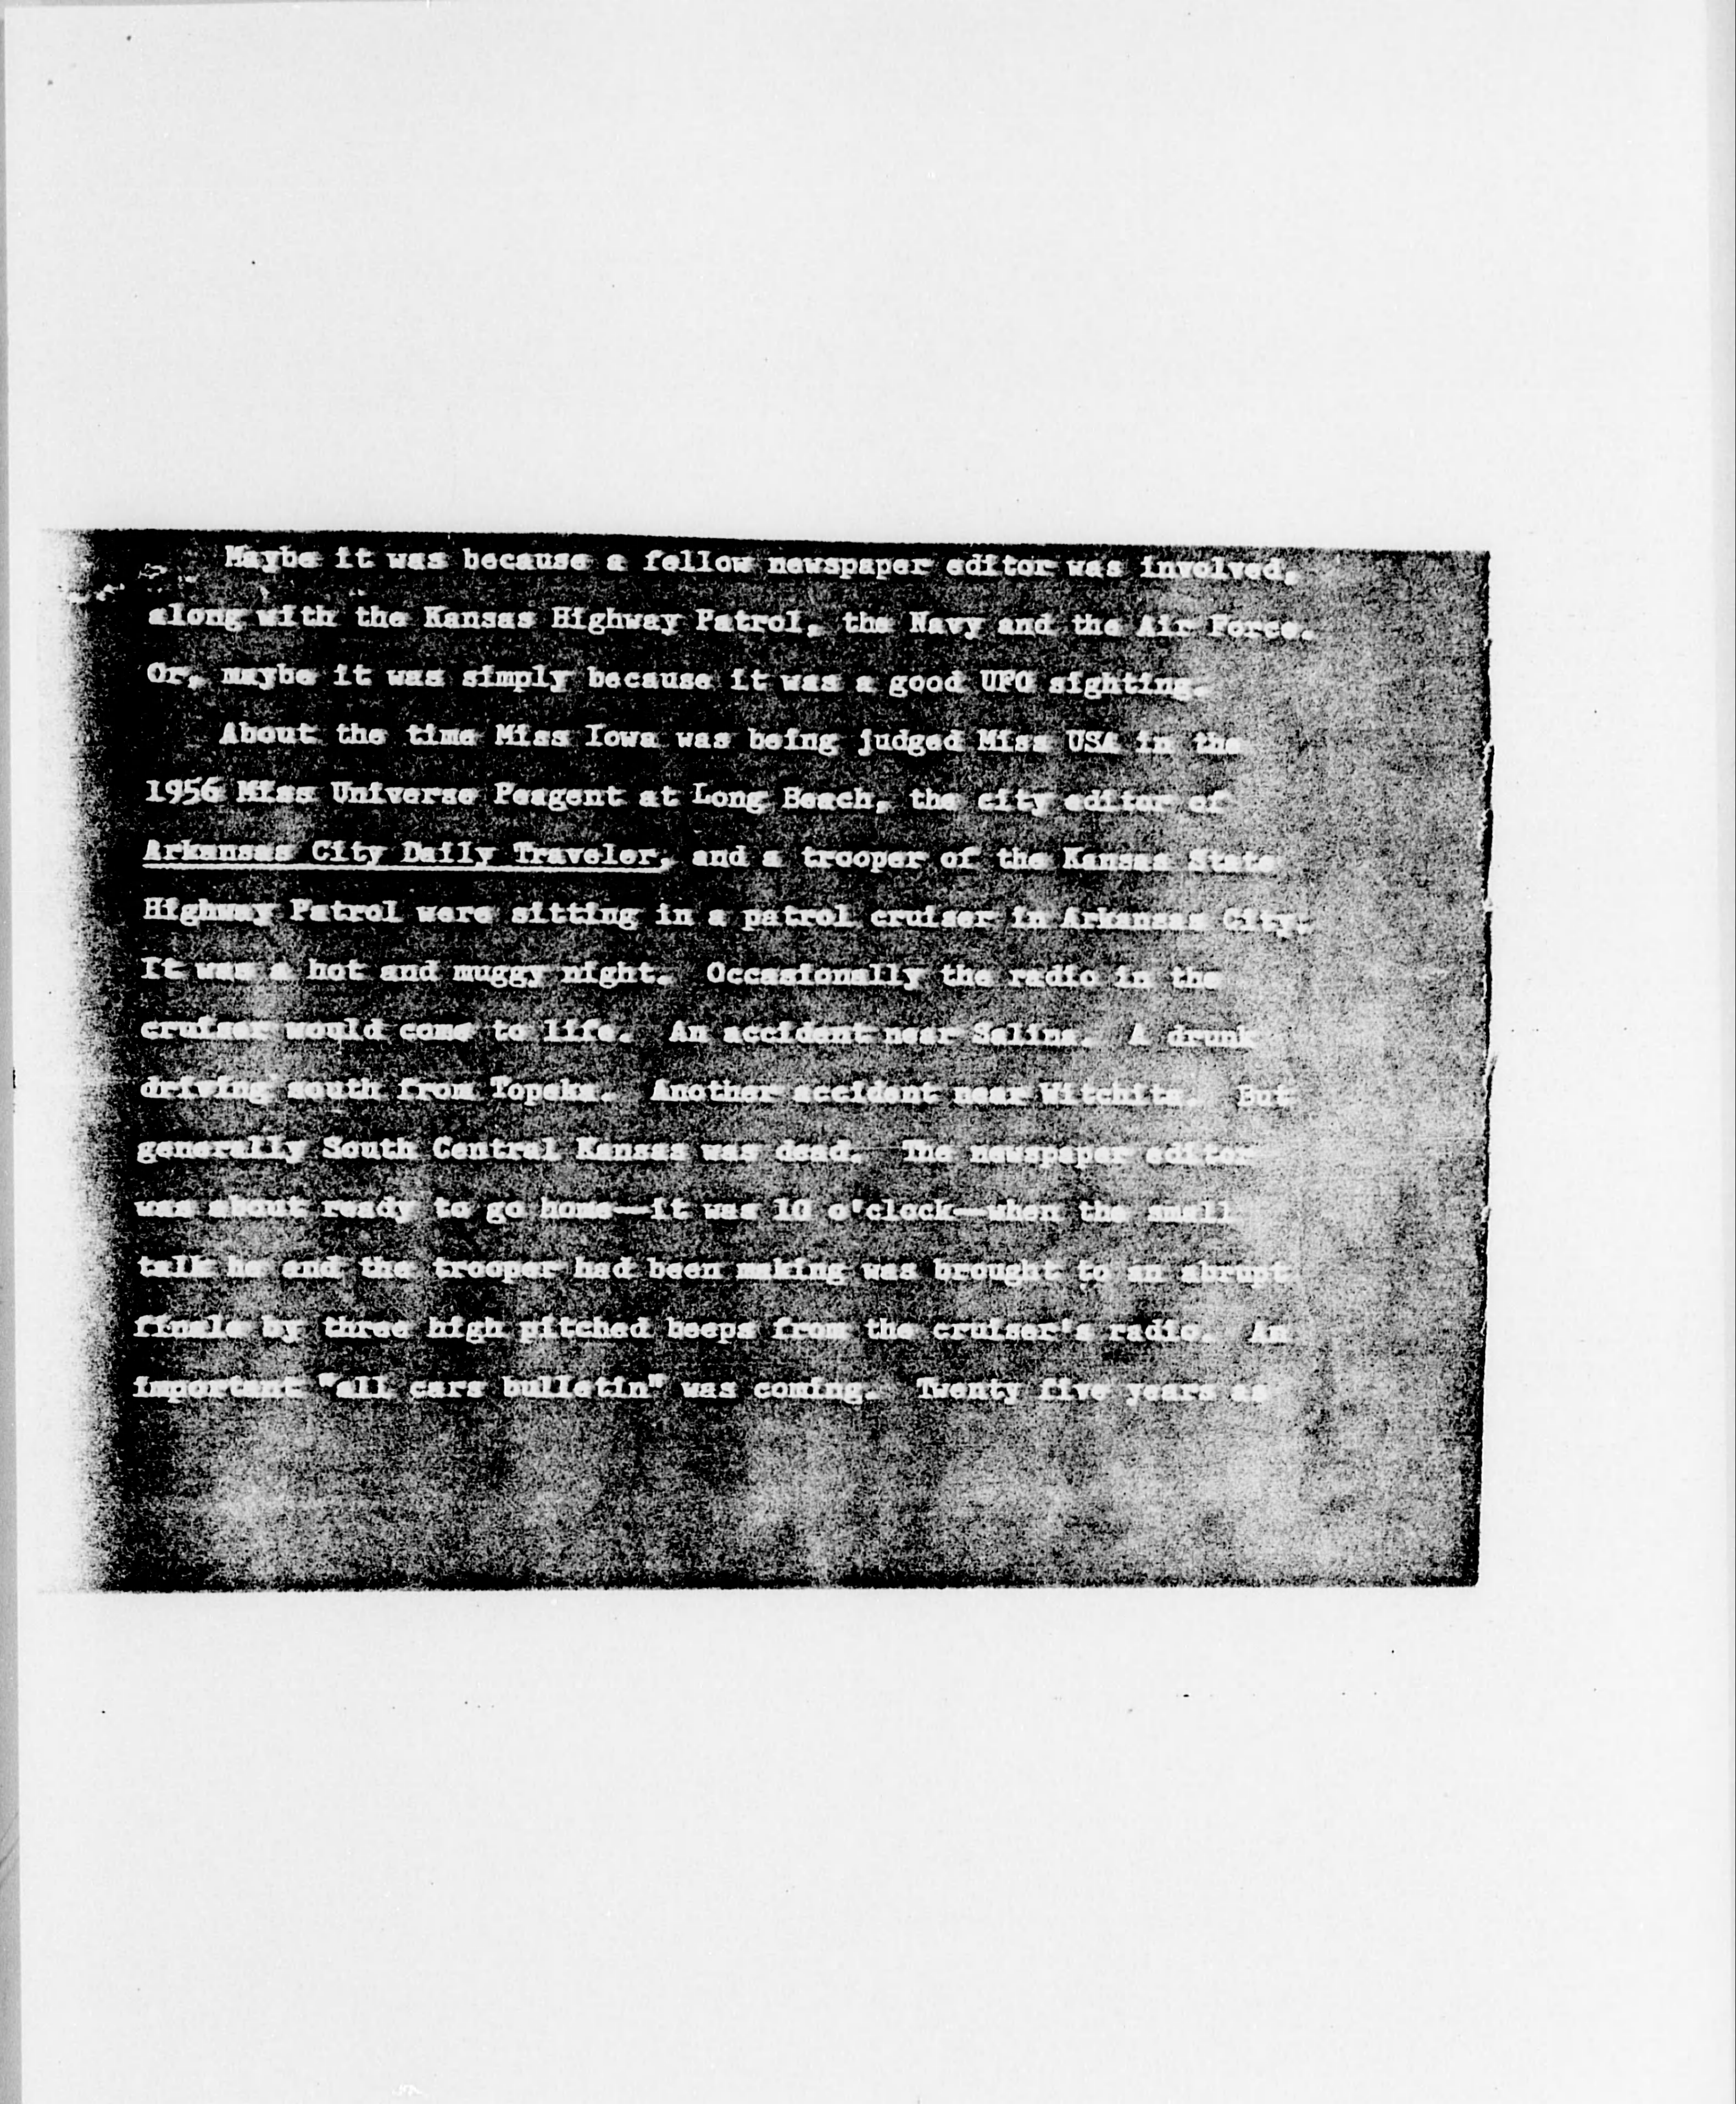 Maybe it was because a fellow newspaper editor was involved,
along with the Kansas Highway Patrol, the Navy and the Air Force.
Or, maybe it was simply because it was a good UFO sighting.
About the time Miss Iowa was being judged Miss USA in the
1956 Miss Universe Peagent at Long Beach, the city editor of
Arkansas City Daily Traveler, and a trooper of the Kansas State
Highway Patrol were sitting in a patrol cruiser in Arkansas City.
It was a hot and muggy night. Occasionally the radio in the
cruiser would come to life. An accident near Salina. A drunk
driving south from Topeka. Another accident near Witchita. But
generally South Central Kansas was dead. The newspaper editor
was about ready to go home—it was 10 o'clock—when the small
talk he and the trooper had been making was brought to an abrupt
finale by three high pitched beeps from the cruiser's radio. An
important "all cars bulletin" was coming. Twenty five years as